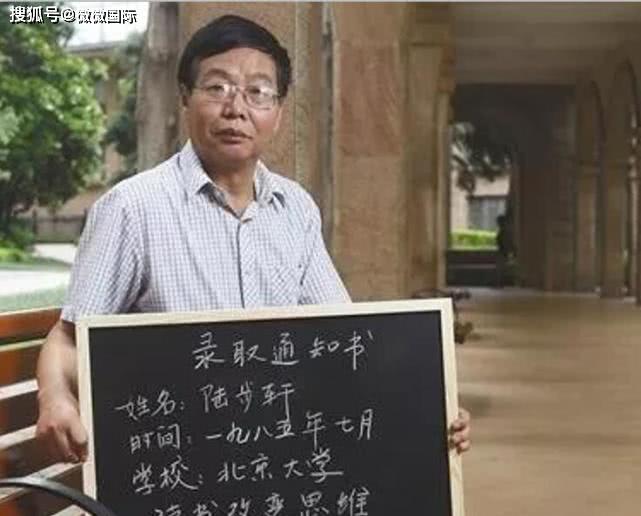 搜狐号@微微国际
录取通知书
姓名：陆步轩
时间：一九八五年七月
学校：北京大学
读书改变思维